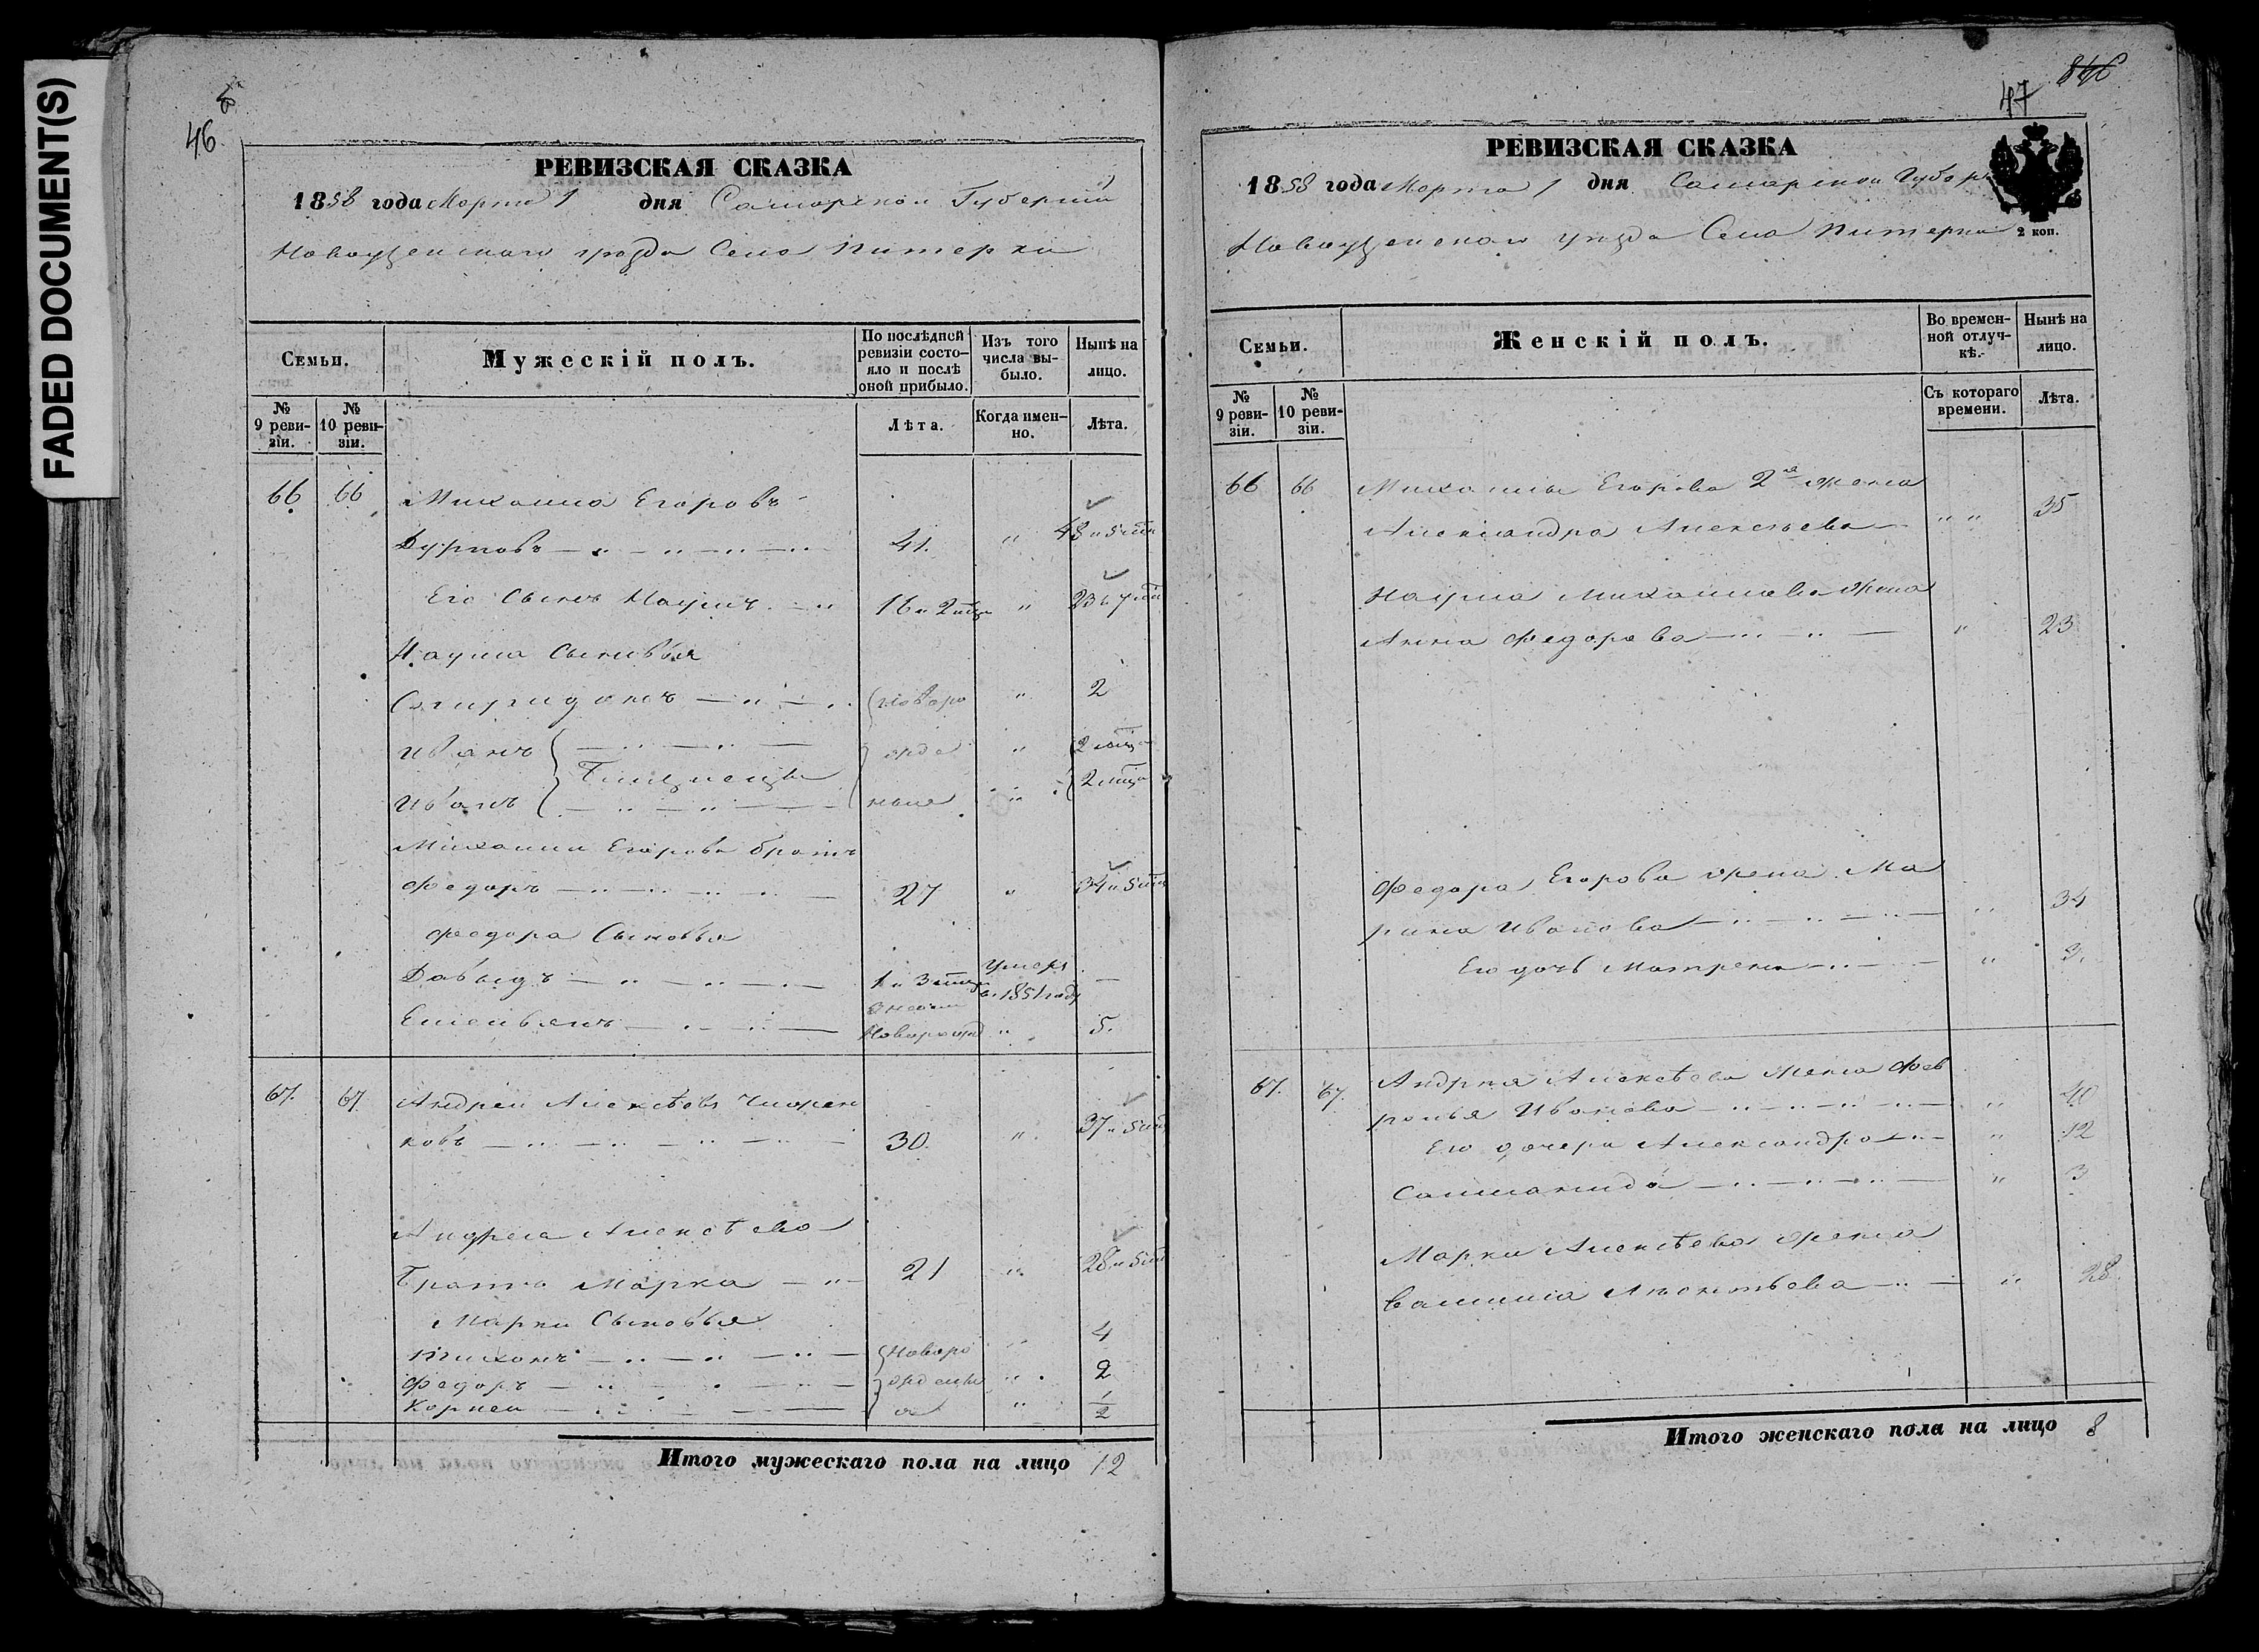 FADED DOCUMENT(S)
46
РЕВИЗСКАЯ СКАЗКА
1858 года Марта 1 дня Самарской Губерніи
Новоузенскаго уезда Села Питерки
Семьи.
Мужескій полъ.
По послѣдней ревизіи состояло и послѣ оной прибыло.
Изъ того числа выбыло.
Нынѣ на лицо.
№ 9 ревизіи.
№ 10 ревизіи.
Лѣта.
Когда именно.
Лѣта.
66 66 Михаила Егоровъ
41. " 43 и 5
Его Сынъ Наумъ 16 и 2 " 23
Наума Сыновья
Спиридонъ {новоро " 2
Иванъ { } жде " {2 мѣца
Близнецы
Иванъ { ные " {2 мѣца
Михаила Егорова братъ
Федоръ 27 " 34 и 5
Федора Сыновья
Давыдъ 1 и 3 умеръ в 1851 году —
Емельянъ Новорожд " 5.
67. 67 Андрей Алексѣевъ
ковъ 30. " 37 и 5
Андрея Алексѣева
Братъ Марка 21 " 28 и 5
Марки Сыновья
Тихонъ {Новоро " 4
Федоръ жденны " 2
Корней " 1/2
Итого мужескаго пола на лицо 12
846
47
РЕВИЗСКАЯ СКАЗКА
1858 года Марта 1 дня Самарской Губер
Новоузенскаго уезда Села Питерки
2 коп.
Семьи.
Женскій полъ.
Во временной отлучкѣ.
Нынѣ на лицо.
№ 9 ревизіи.
№ 10 ревизіи.
Съ котораго времени.
Лѣта.
66 66 Михаилы Егорова 2я жена
Александра Алексѣева " " 35
Наума Михаилова жена
Анна Федорова " 23
Федора Егорова жена Ма
рина Иванова " 34
Его дочь Матрена " 3.
67. 67. Андрея Алексѣева жена Фев
ронья Иванова " 40
Его дочери Александра " 12
Саломанида " 3
Марки Алексѣева жена
Леонтьева " 28.
Итого женскаго пола на лицо 8